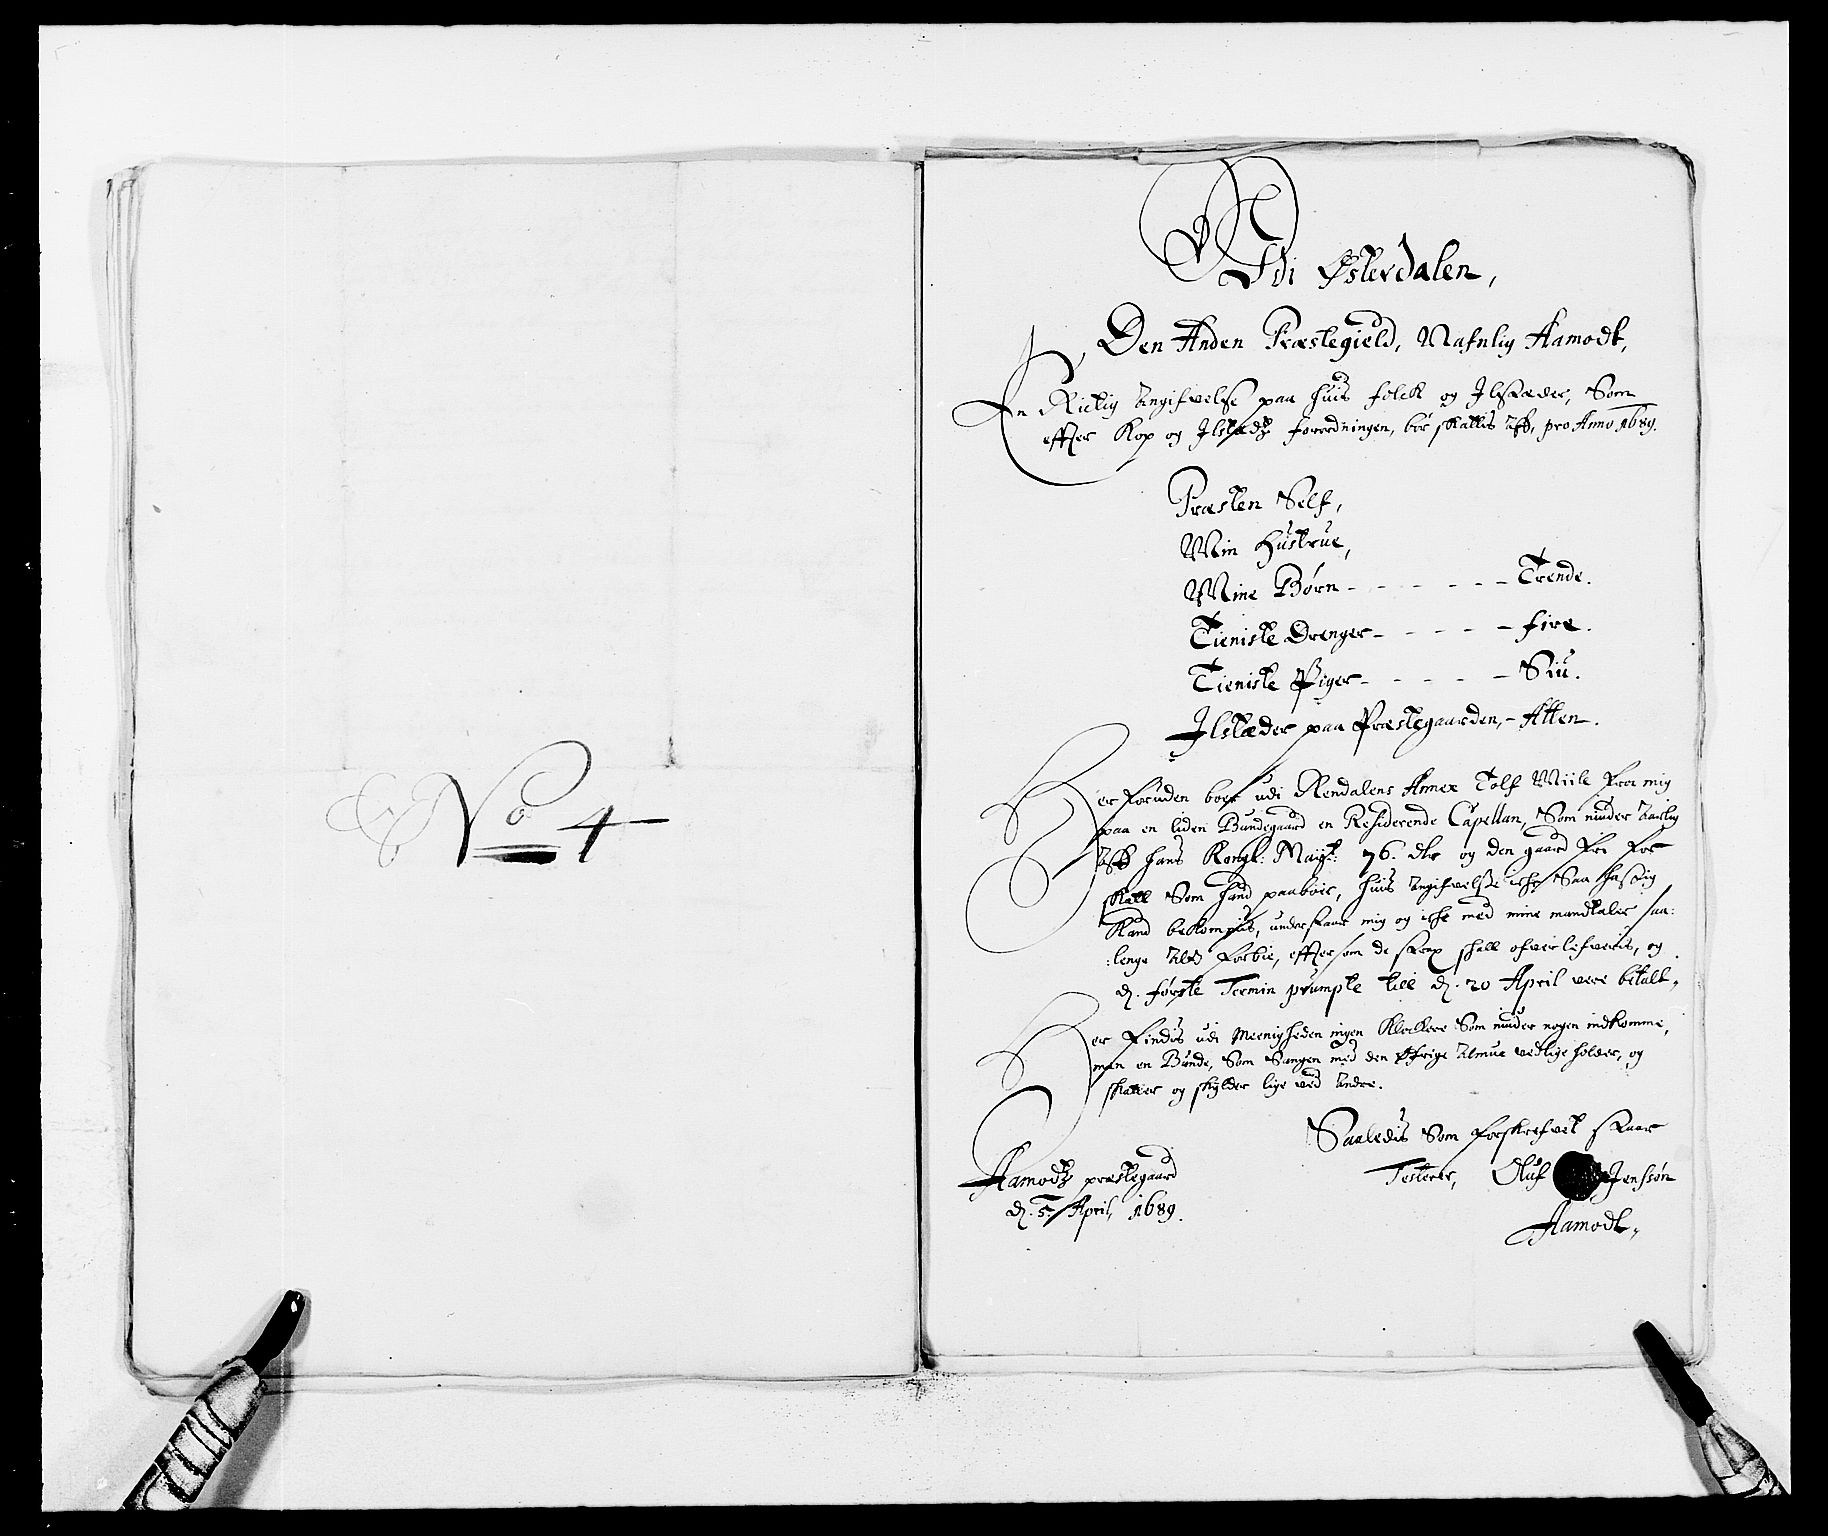 No 4
Udi Østerdalen,
Den Anden Præstegield, Nafnlig Aamodt,
En Rictig Angifvelse paa huis folck og Ilstæder, Som
effter Kop og Ilstædz forordningen, bør skattis aff, pro Anno 1689.
Præsten Self,
Min Hustrue,
Mine Børn - - - - - - - Trende.
Tieniste Drenger - - - - - fire.
Tieniste Piger - - - - - Siu.
Ilstæder paa Præstegaarden, - Atten.
Her foruden boer udi Rendalens Annex Tolf Miile fra mig
paa en liden Bundegaard en Residerende Capellan, Som niuder Aarlig
aff hans Kongl: Mayst: 76. dlr og den gaard fri for
skatt Som hand paaboer, huis Angifvelse iche Saa hastig
kand bekommis, understaar mig og iche med mine mandtaler saa:
:lenge at forbie, effter som de strax skall ofverlefveris, og
d. første Termin prumpte till d. 20 April vere betalt,
Her findis udi Meenigheden ingen Klockere Som niuder nogen indkomme,
men en Bunde, Som Sangen med den øfrige Almue vedlige holder, og
skatter og skylder lige ved andre.
Saaledis Som forskrefvet staar
Testerer, Oluf Jenssøn
Aamodt,
Aamodtz præstegaard
d. 5. April, 1689.